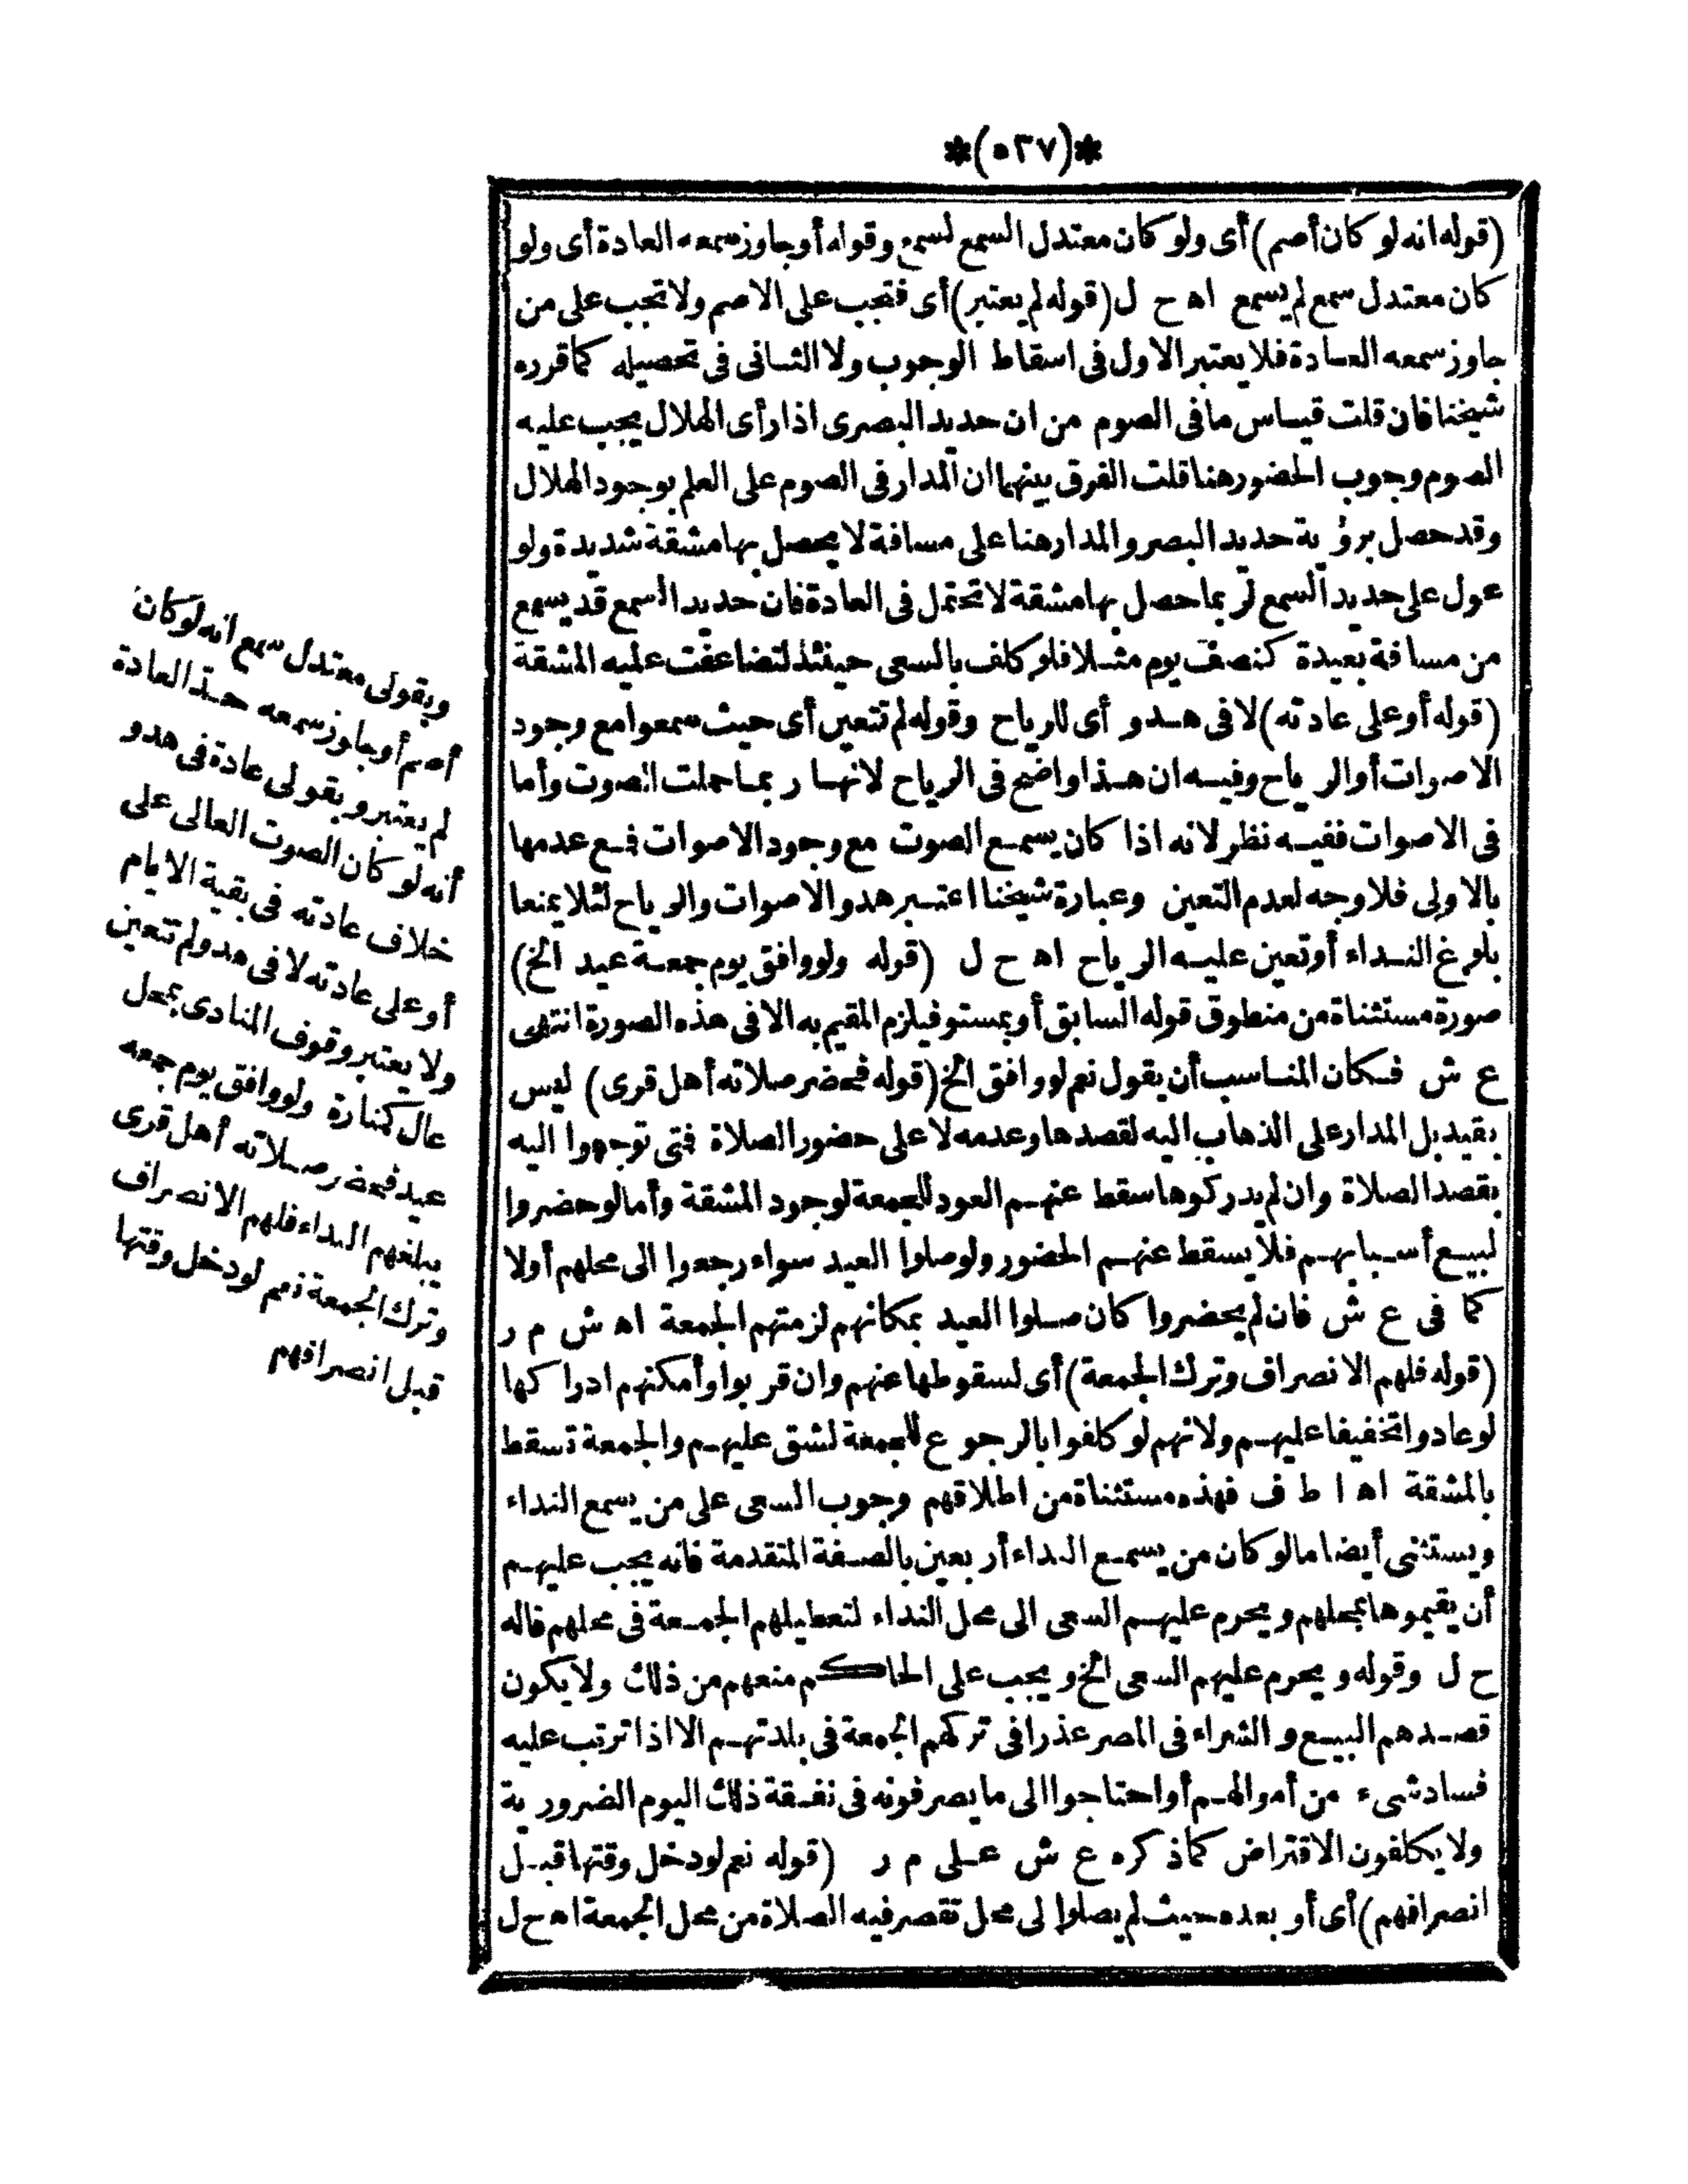 *(٥٣٧)*
(قوله انه لو كان أصم) أى ولو كان معتدل السمع لسمع وقوله أو جاوز سمعه العادة أى ولو
كان معتدل سمع لم يسمع اه ح ل (قوله لم يعتبر) أى فتجب على الاصم ولا تجب على من
جاوز سمعه العادة فلا يعتبر الاول فى اسقاط الوجوب ولا الثانى فى تحصيله كما قرره
شيخنا فان قلت قياس ما فى الصوم من ان حديد البصرى اذا رأى الهلال يجب عليه
الصوم وجوب الحضور هنا قلت الفرق بينهما ان المدار فى الصوم على العلم بوجود الهلال
وقد حصل برؤية حديد البصر والمدار هنا على مسافة لا يحصل بها مشقة شديدة ولو
عول على حديد السمع لربما حصل بها مشقة لا تحتمل فى العادة فان حديد السمع قد يسمع
من مسافة بعيدة كنصف يوم مثلا فلو كلف بالسعى حينئذ لتضاعفت عليه المشقة
(قوله أو على عادته) لا فى هدو أى للرياح وقوله لم تتعين أى حيث سمعوا مع وجود
الاصوات أو الرياح وفيه ان هذا واضح فى الرياح لانها ربما حملت الصوت وأما
فى الاصوات ففيه نظر لانه اذا كان يسمع الصوت مع وجود الاصوات فمع عدمها
بالاولى فلا وجه لعدم التعين وعبارة شيخنا اعتبر هدو الاصوات والرياح لئلا يمنعا
بلوغ النداء أو تعين عليه الرياح اه ح ل (قوله ولو وافق يوم جمعة عيد الخ)
صورة مستثناة من منطوق قوله السابق أو بمستو فيلزم المقيم به الا فى هذه الصورة انتهى
ع ش فكان المناسب أن يقول نعم لو وافق الخ (قوله فحضر صلاته أهل قرى) ليس
بقيد بل المدار على الذهاب اليه لقصدها وعدمه لا على حضور الصلاة فمتى توجهوا اليه
بقصد الصلاة وان لم يدركوها سقط عنهم العود للجمعة لوجود المشقة وأما لو حضروا
لبيع أسبابهم فلا يسقط عنهم الحضور ولو صلوا العيد سواء رجعوا الى محلهم أولا
كما فى ع ش فان لم يحضروا كان صلوا العيد بمكانهم لزمتهم الجمعة اه ش م ر
(قوله فلهم الانصراف وترك الجمعة) أى لسقوطها عنهم وان قربوا وأمكنهم ادراكها
لو عادوا تخفيفا عليهم ولانهم لو كلفوا بالرجوع للجمعة لشق عليهم والجمعة تسقط
بالمشقة اه ا ط ف فهذه مستثناة من اطلاقهم وجوب السعى على من يسمع النداء
ويستثنى أيضا ما لو كان من يسمع النداء أربعين بالصفة المتقدمة فانه يجب عليهم
أن يقيموها بمحلهم ويحرم عليهم السعى الى محل النداء لتعطيلهم الجمعة فى محلهم قاله
ح ل وقوله ويحرم عليهم السعى الخ ويجب على الحاكم منعهم من ذلك ولا يكون
قصدهم البيع والشراء فى المصر عذرا فى تركهم الجمعة فى بلدتهم الا اذا ترتب عليه
فساد شىء من أموالهم أو احتاجوا الى ما يصرفونه فى نفقة ذلك اليوم الضرورية
ولا يكلفون الاقتراض كما ذكره ع ش على م ر (قوله نعم لو دخل وقتها قبل
انصرافهم) أى أو بعده حيث لم يصلوا لى محل تقصر فيه الصلاة من محل الجمعة اه ح ل
وبقولى معتدل سمع انه لو كان
أصم أو جاوز سمعه حد العادة
لم يعتبر وبقولى عادة فى هدو
أنه لو كان الصوت العالى على
خلاف عادته فى بقية الايام
أو على عادته لا فى هدو لم تتعين
ولا يعتبر وقوف المنادى بمحل
عال كمنارة ولو وافق يوم جمعه
عيد فحضر صلاته أهل قرى
يبلغهم النداء فلهم الانصراف
وترك الجمعة نعم لو دخل وقتها
قبل انصرافهم